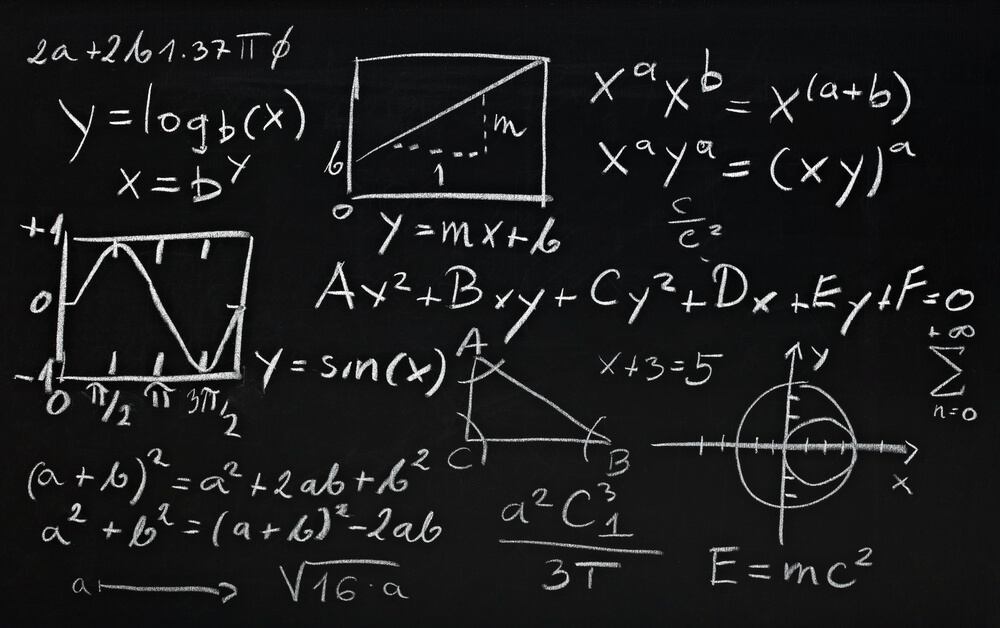 2a+2b1.37πϕ
y=log_b(x)
x=b^y
m
b
1
0
y=mx+b
x^a x^b = x^(a+b)
x^a y^a = (xy)^a
c/c²
+1
0
-1
0 π/2 π 3π/2
y=sin(x)
Ax²+Bxy+Cy²+Dx+Ey+F=0
A
C
B
x+3=5
y
x
+∞
∑
n=0
(a+b)²=a²+2ab+b²
a²+b²=(a+b)²-2ab
a
√16·a
a²C³₁
3T
E=mc²